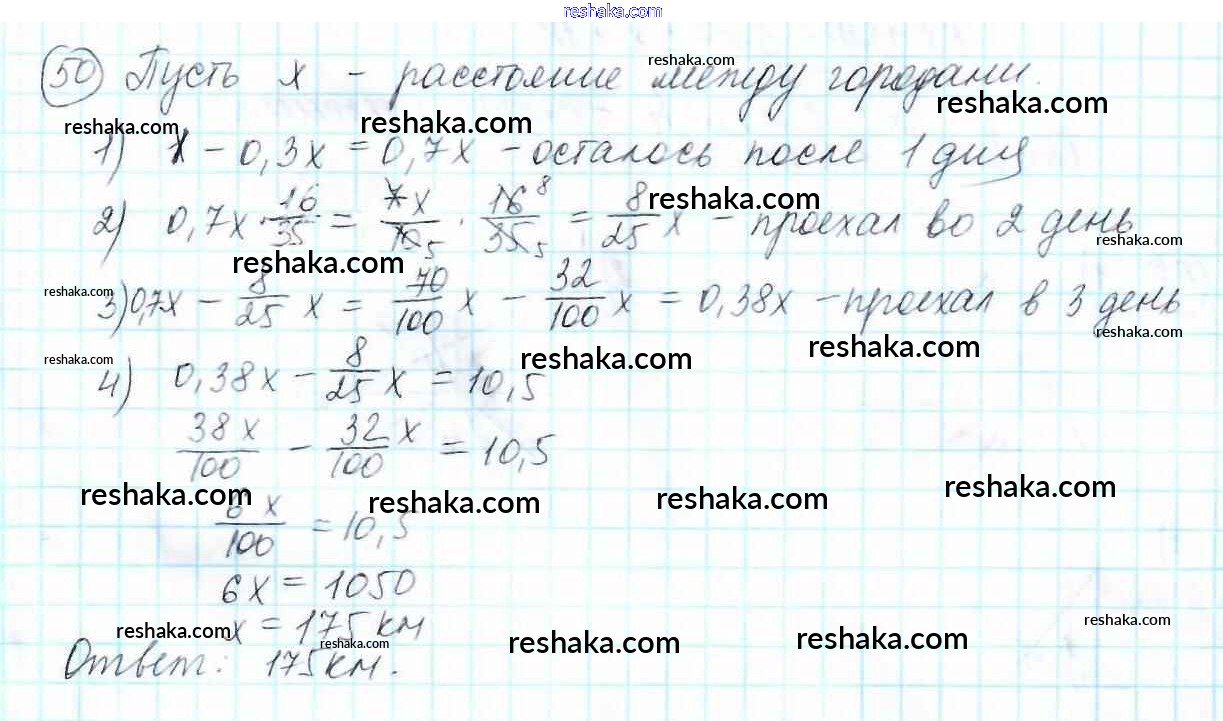 reshaka.com
50 Пусть х - расстояние между городами.
reshaka.com
reshaka.com
reshaka.com
reshaka.com
1) х - 0,3х = 0,7х - осталось после 1 дня
reshaka.com
2) 0,7х · 16/35 = 7х/10 5 · 16 8/35 5 = 8/25 х - проехал во 2 день
reshaka.com
reshaka.com
reshaka.com
3) 0,7х - 8/25 х = 70/100 х - 32/100 х = 0,38х - проехал в 3 день
reshaka.com
reshaka.com
reshaka.com
reshaka.com
4) 0,38х - 8/25 х = 10,5
38х/100 - 32/100 х = 10,5
reshaka.com
reshaka.com
reshaka.com
reshaka.com
6х/100 = 10,5
6х = 1050
х = 175 км
reshaka.com
reshaka.com
reshaka.com
reshaka.com
reshaka.com
Ответ: 175 км.